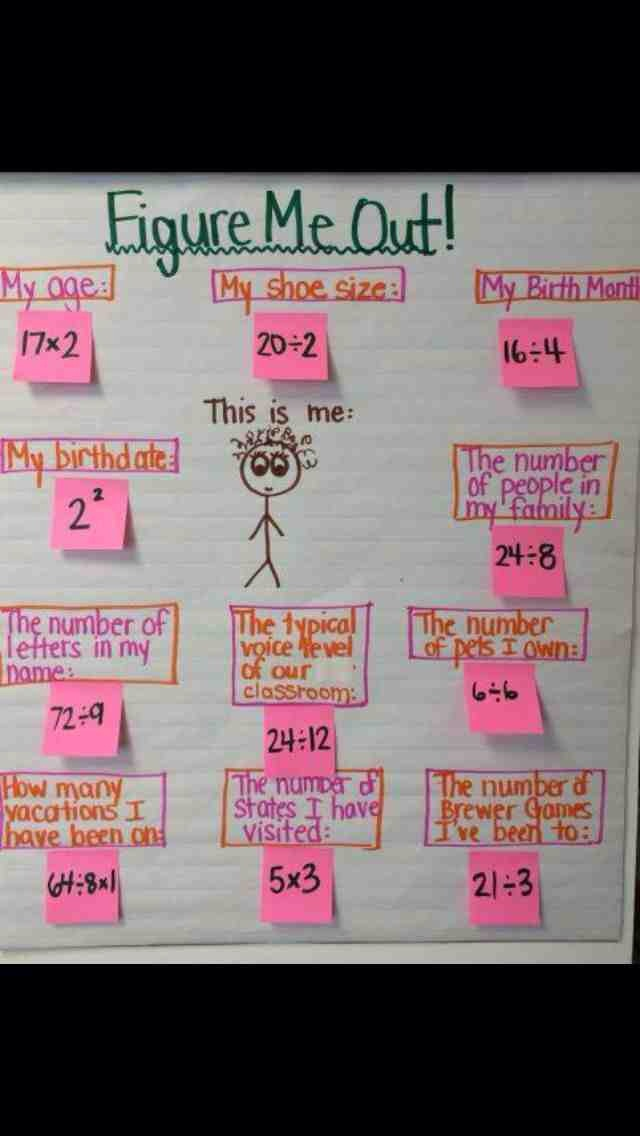 Figure Me Out!
My age:
17×2
My shoe size:
20÷2
My Birth Month
16÷4
This is me:
My birthdate:
2²
The number
of people in
my family:
24÷8
The number of
letters in my
name:
72÷9
The typical
voice level
of our
classroom:
24÷12
The number
of pets I own:
6÷6
How many
vacations I
have been on:
64÷8×1
The number of
states I have
visited:
5×3
The number of
Brewer Games
I've been to:
21÷3